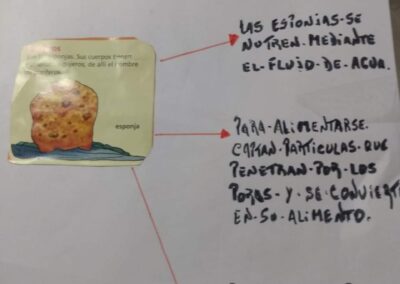 esponjas. Sus cuerpos tienen
de allí el nombre
esponja
LAS ESPONJAS-SE
NUTREN-MEDIANTE
EL-FLUID-DE-AGUA.
PARA-ALIMENTARSE.
CAPTAN-PARTICULAS-QUE
PENETRAN-POR-LOS
POROS-Y-SE-CONVIERT
EN-SU-ALIMENTO.